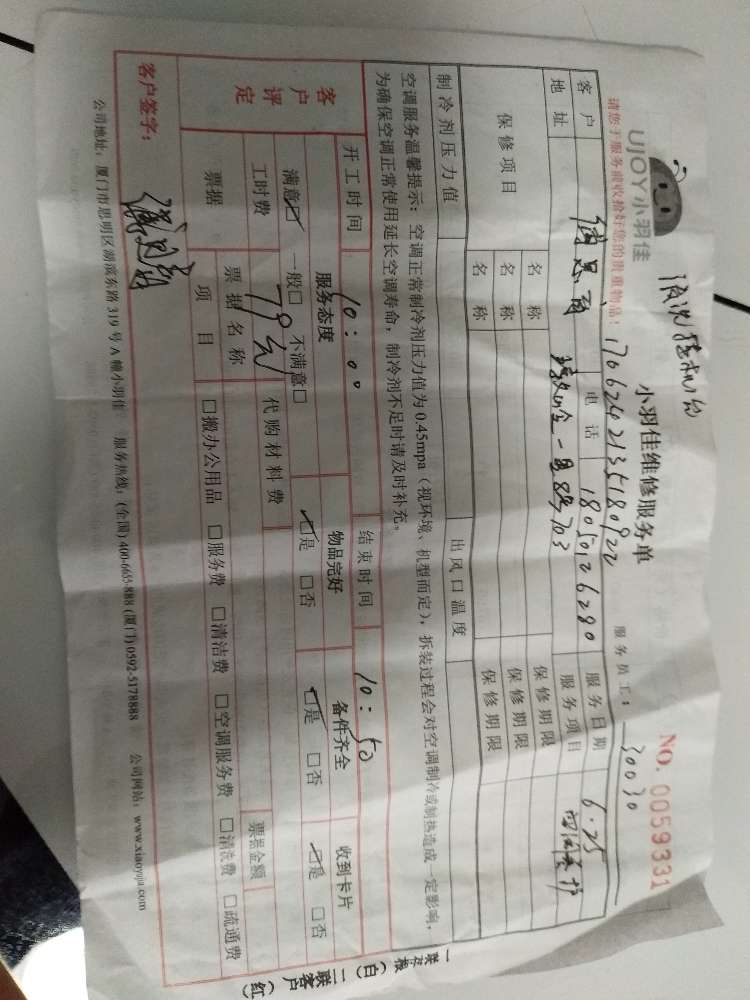 UJOY小羽佳
小羽佳维修服务单
NO. 0059331
请您于服务前收拾好您的贵重物品！
17062421351 80922
服务员工：
30030
客户
电话
18050126280
服务日期
6.25
地址
8#703
服务项目
保修项目
名称
保修期限
名称
保修期限
名称
保修期限
制冷剂压力值
出风口温度
空调服务温馨提示：空调正常制冷剂压力值为0.45mpa（视环境、机型而定），拆装过程会对空调制冷或制热造成一定影响，
为确保空调正常使用延长空调寿命，制冷剂不足时请及时补充。
客户评定
开工时间
10：00
结束时间
10：50
服务态度
物品完好
备件齐全
收到卡片
满意☑ 一般□ 不满意□
☑是 □否
☑是 □否
☑是 □否
工时费
79元
代购材料费
票据
票据名称
票据金额
项目
□搬办公用品 □服务费 □清洁费 □空调服务费 □清洗费 □疏通费
客户签字：
公司地址：厦门市思明区湖滨东路319号A幢小羽佳 服务热线：(全国) 400-6655-888 (厦门) 0592-5178888 公司网站：www.xiaoyujia.com
一联存根（白）二联客户（红）